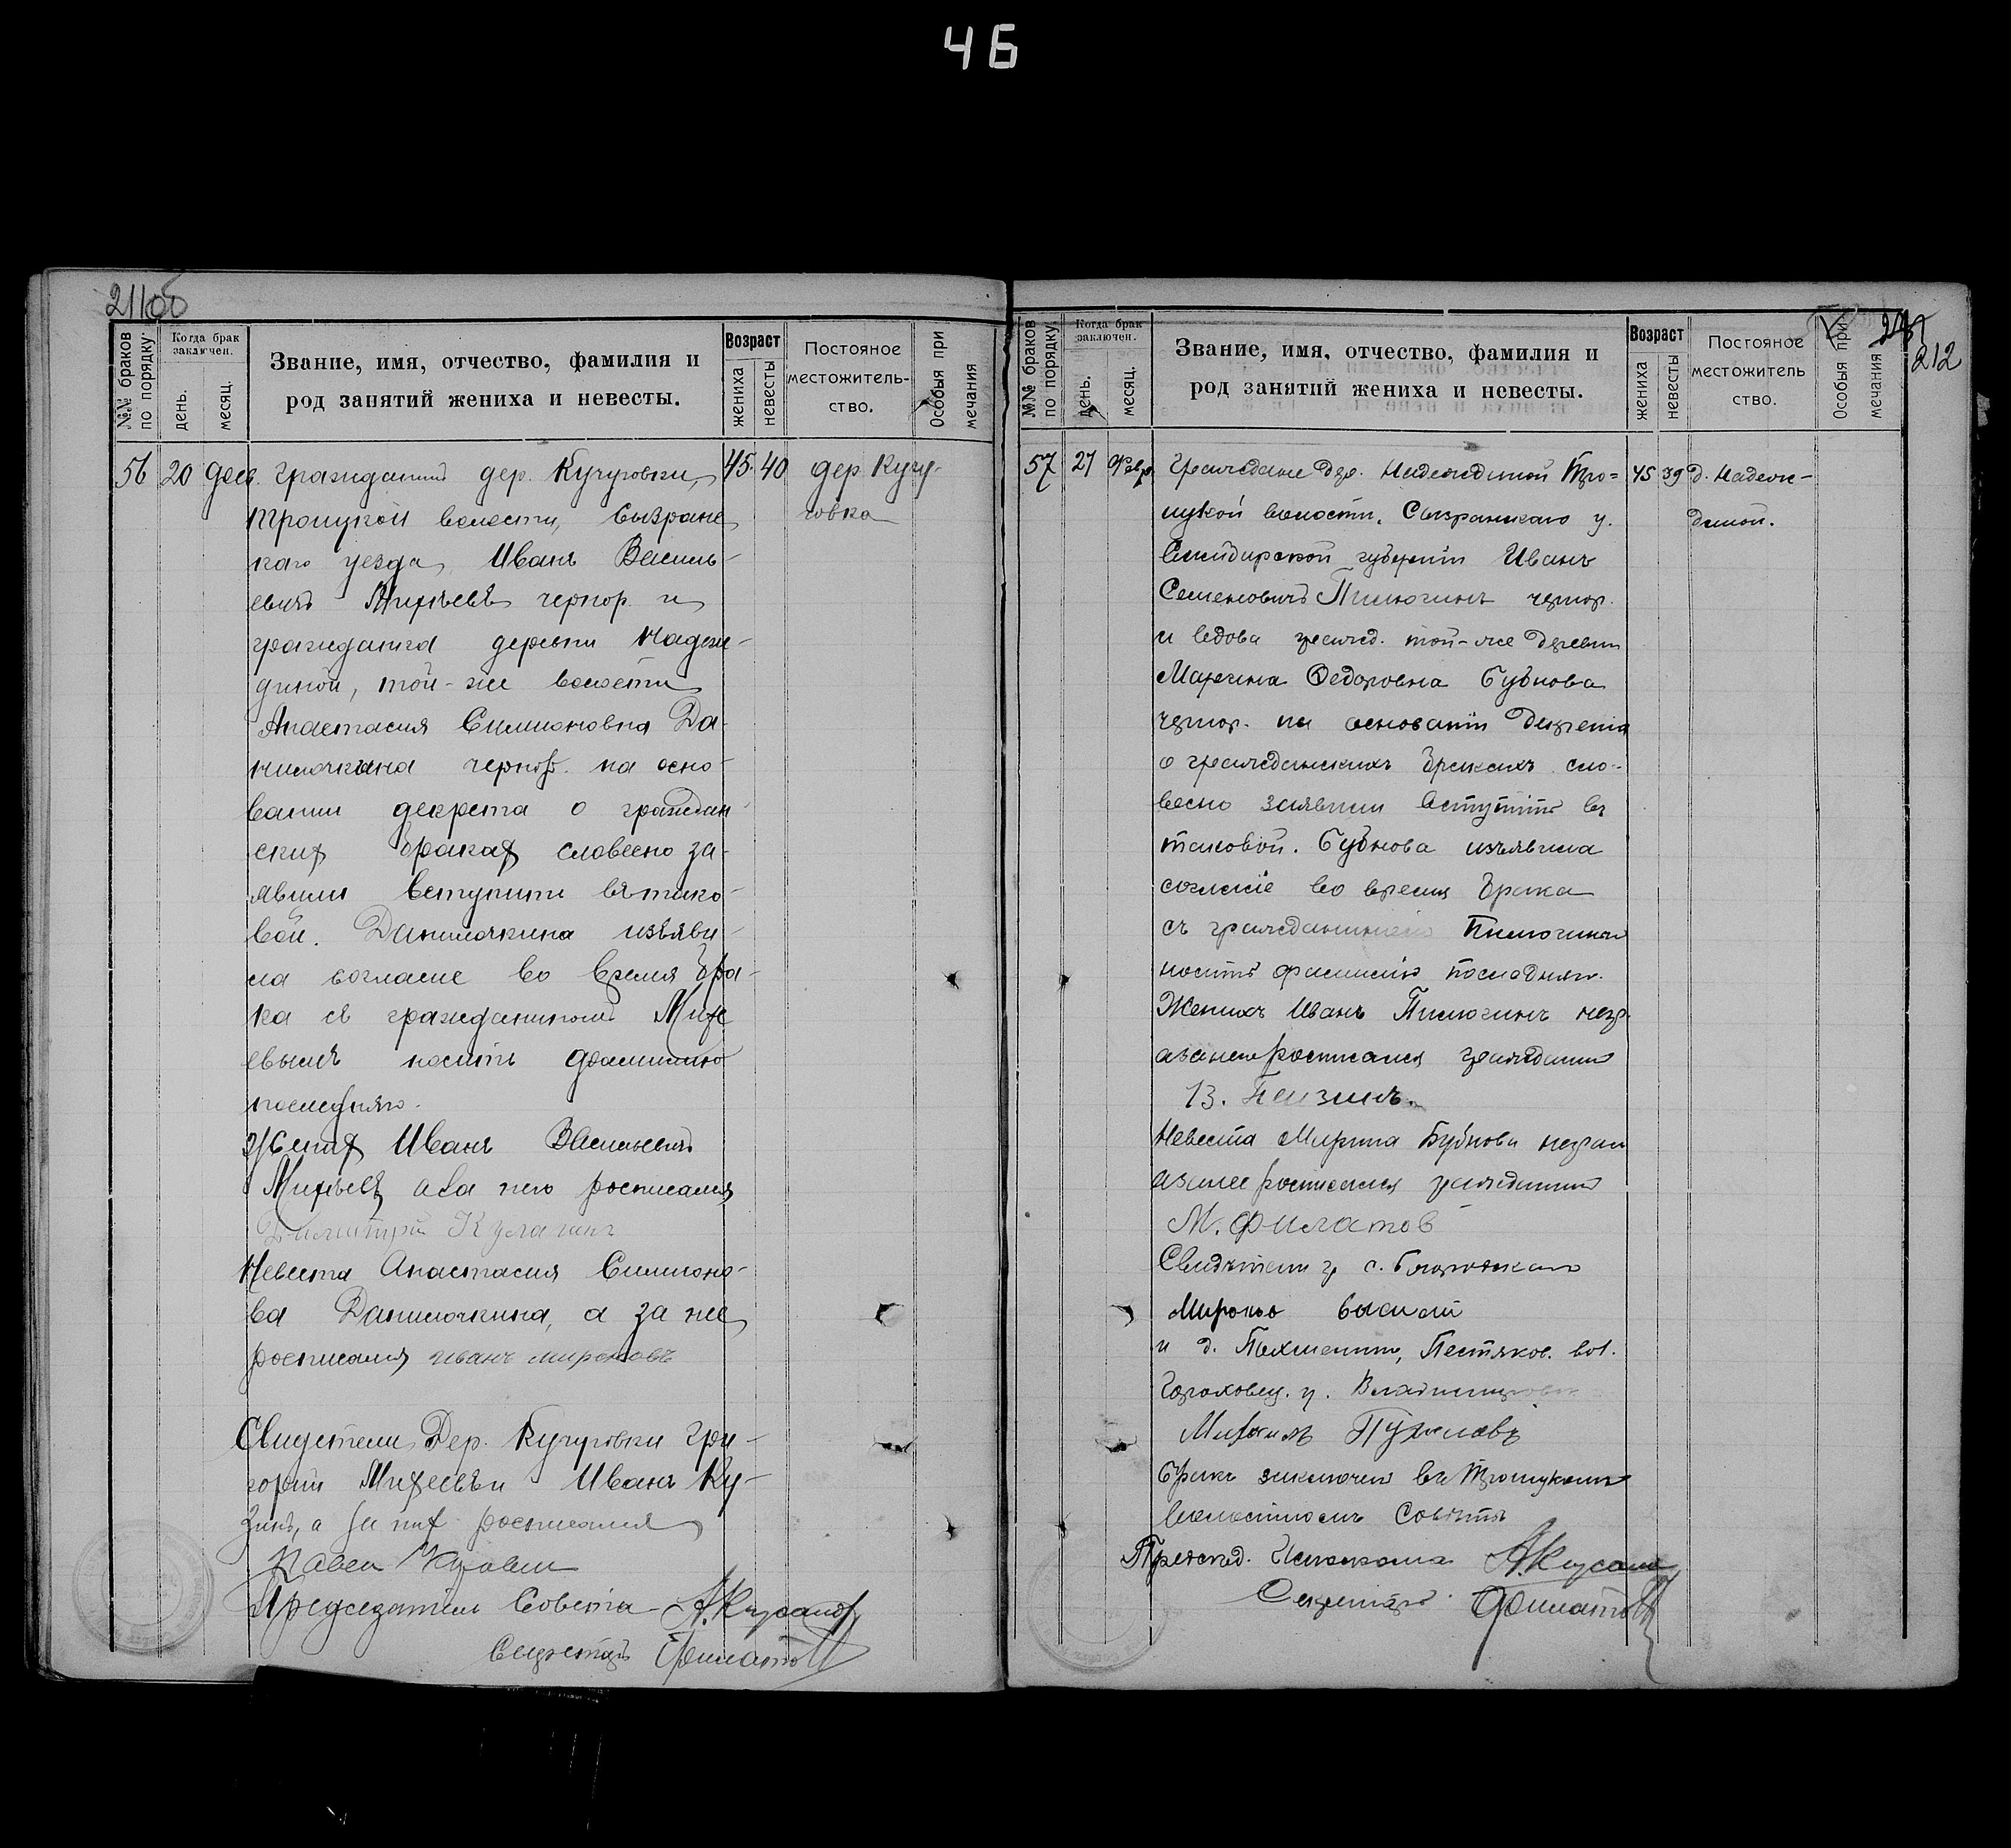 46
211об
№№ браков по порядку.
Когда брак заключен.
день.
месяц.
Звание, имя, отчество, фамилия и
род занятий жениха и невесты.
Возраст
жениха
невесты
Постояное
местожитель-
ство.
Особыя при
мечания
56 20 гражданин дер. Кучуговки, 45. 40 дер. Кучу-
Троицкой волости, Сызранс говка
каго уезда, Иванъ Василь-
евичъ Михѣевъ чернор. и
гражданка деревни Надеж-
диной, той-же волости
Анастасия Симионовна Да-
нилочкина чернор. на осно-
вании декрета о граждан-
ских браках словесно за-
явили вступить в тако-
вой. Данилочкина изъяви-
ла согласие во время бра-
ка съ гражданиномъ Михе
евымъ носить фамилию
последняго.
Жених Иванъ Васильевичъ
Михѣевъ а за него росписался
Димитрий Кулагинъ
Невеста Анастасия Симионо-
ва Данилочкина, а за нее
росписался Иванъ Мироновъ
Свидетели Дер. Кучуговки Гри-
горий Михеевъ и Иванъ Ку-
зинъ, а за них росписался
Павел
Председатель Совета
Секретарь Филатов
№№ браков по порядку.
Когда брак заключен.
день.
месяц.
Звание, имя, отчество, фамилия и
род занятий жениха и невесты.
Возраст
жениха
невесты
Постояное
местожитель
ство.
Особыя при
мечания
212
57 27 Февр. Граждане дер. Надеждиной Тро= 45 39 д. Надеж-
ицкой волости, Сызранскаго у. диной.
Симбирской губернiи Иванъ
Семеновичъ Пилюгинъ чернор.
и вдова гражд. той-же деревни
Марина Федоровна Бубнова
чернор. на основанiи Декрета
о гражданскихъ бракахъ сло-
весно заявили вступить въ
таковой. Бубнова изъявила
согласiе во время брака
съ гражданиномъ Пилюгинымъ
носить фамилiю последняго.
Женихъ Иванъ Пилюгинъ негр.
а за него росписался гражданин
Невеста Марина Бубнова неграм
а за нее росписался гражданин
М. Филатов
Свидѣтели гр с.
Миронов
и д. Пестяков. вол.
Гороховец. у. Владимирской
Михаилъ
Бракъ заключен въ Троицкомъ
волостномъ Совѣтѣ
Председ. Исполкома
Секретарь Филатов